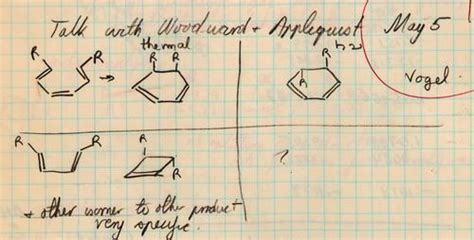 Talk with Woodward + Applequist May 5
thermal
R R
R R
R hν
R
Vogel
R R
R
R
?
+ other isomer to other product
very specific